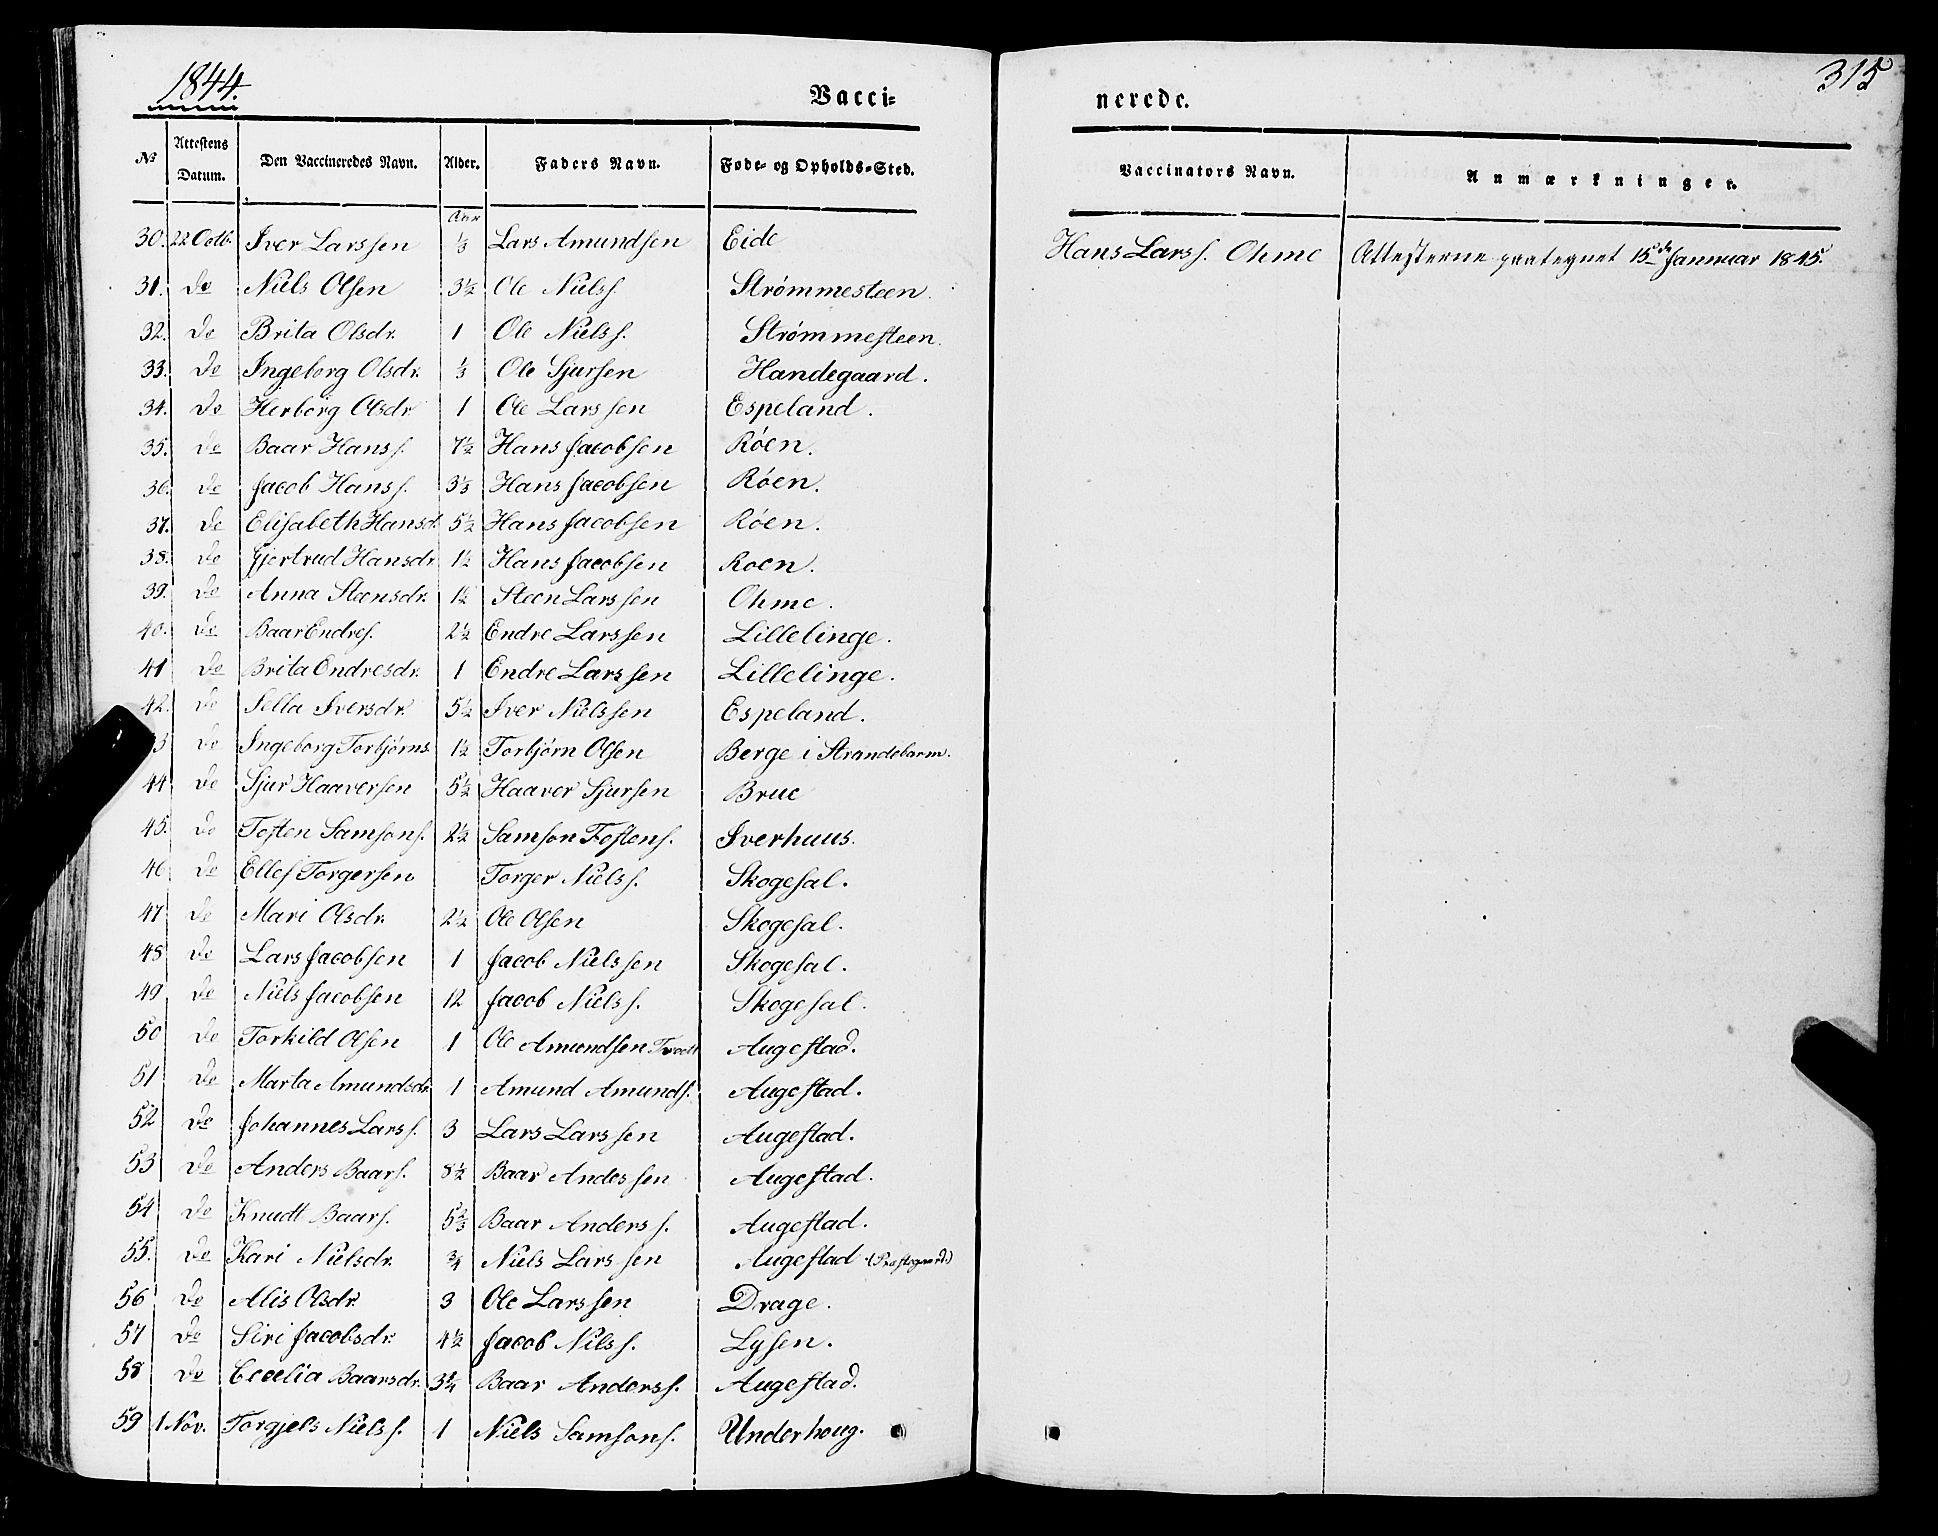 1844.
Vacci=
nerede.
315
No Attestens Datum. Den Vaccineredes Navn. Alder. Faders Navn. Føde- og Opholds-Sted. Vaccinators Navn. Anmærkninger.
Aar
30. 22 Octb. Iver Larssen 1/3 Lars Amundsen Eide Hans Larss. Ohme Attesterne paategnet 15de Januar 1845.
31. do Niels Olsen 3 1/2 Ole Nielss. Strømmesteen.
32. do Brita Olsdr. 1 Ole Nielss. Strømmesteen.
33. do Ingeborg Olsdr. 1/3 Ole Sjursen Handegaard.
34. do Herborg Olsdr 1 Ole Larssen Espeland.
35. do Baar Hanss. 7 1/2 Hans Jacobsen Røen.
36. do Jacob Hanss. 3 1/3 Hans Jacobsen Røen.
37. do Elisabeth Hansd. 5 1/2 Hans Jacobsen Røen.
38. do Gjertrud Hansdr. 1 1/2 Hans Jacobsen Roen.
39. do Anna Steensdr. 1 1/2 Steen Larssen Ohme.
40. do Baar Endres. 2 1/2 Endre Larssen Lillelinge.
41 do Brita Endresdr. 1 Endre Larssen Lillelinge.
42. do Sella Iversdr. 5 1/2 Iver Nielssen Espeland.
3 do Ingeborg Torbjørns. 1 1/2 Torbjørn Olsen Berge i Strandebarm.
44 do Sjur Haaversen 5 1/2 Haaver Sjursen Brue
45. do Tosten Samsons. 2 1/2 Samson Tostens. Iverhuus.
46 do Ellef Torgersen Torger Nielss. Skogesal.
47 do Mari Olsdr. 2 1/2 Ole Olsen Skogesal.
48 do Lars Jacobsen 1 Jacob Nielssen Skogesal.
49 do Niels Jacobsen 12 Jacob Nielss. Skogesal.
50 do Torkild Olsen 1 Ole Amundsen Augestad.
51 do Marta Amundsdr. 1 Amund Amunds. Augestad.
52 do Johannes Larss. 3 Lars Larssen Augestad.
53 do Anders Baars. 8 1/2 Baar Andessen Augestad.
54 do Knudt Baars. 5 2/3 Baar Anderss. Augestad.
55. do Kari Nielsdr. 3/4 Niels Larssen Augestad (Præstegaard)
56 do Alis Olsdr. 3 Ole Larssen Drage.
57 do Siri Jacobsdr. 4 1/2 Jacob Nilss. Lysen.
58 do Cecelia Baarsdr. 3 3/4 Baar Anderss. Augestad.
59 1 Nov. Torgjels Nielss. 1 Niels Samsons. Underhoug.